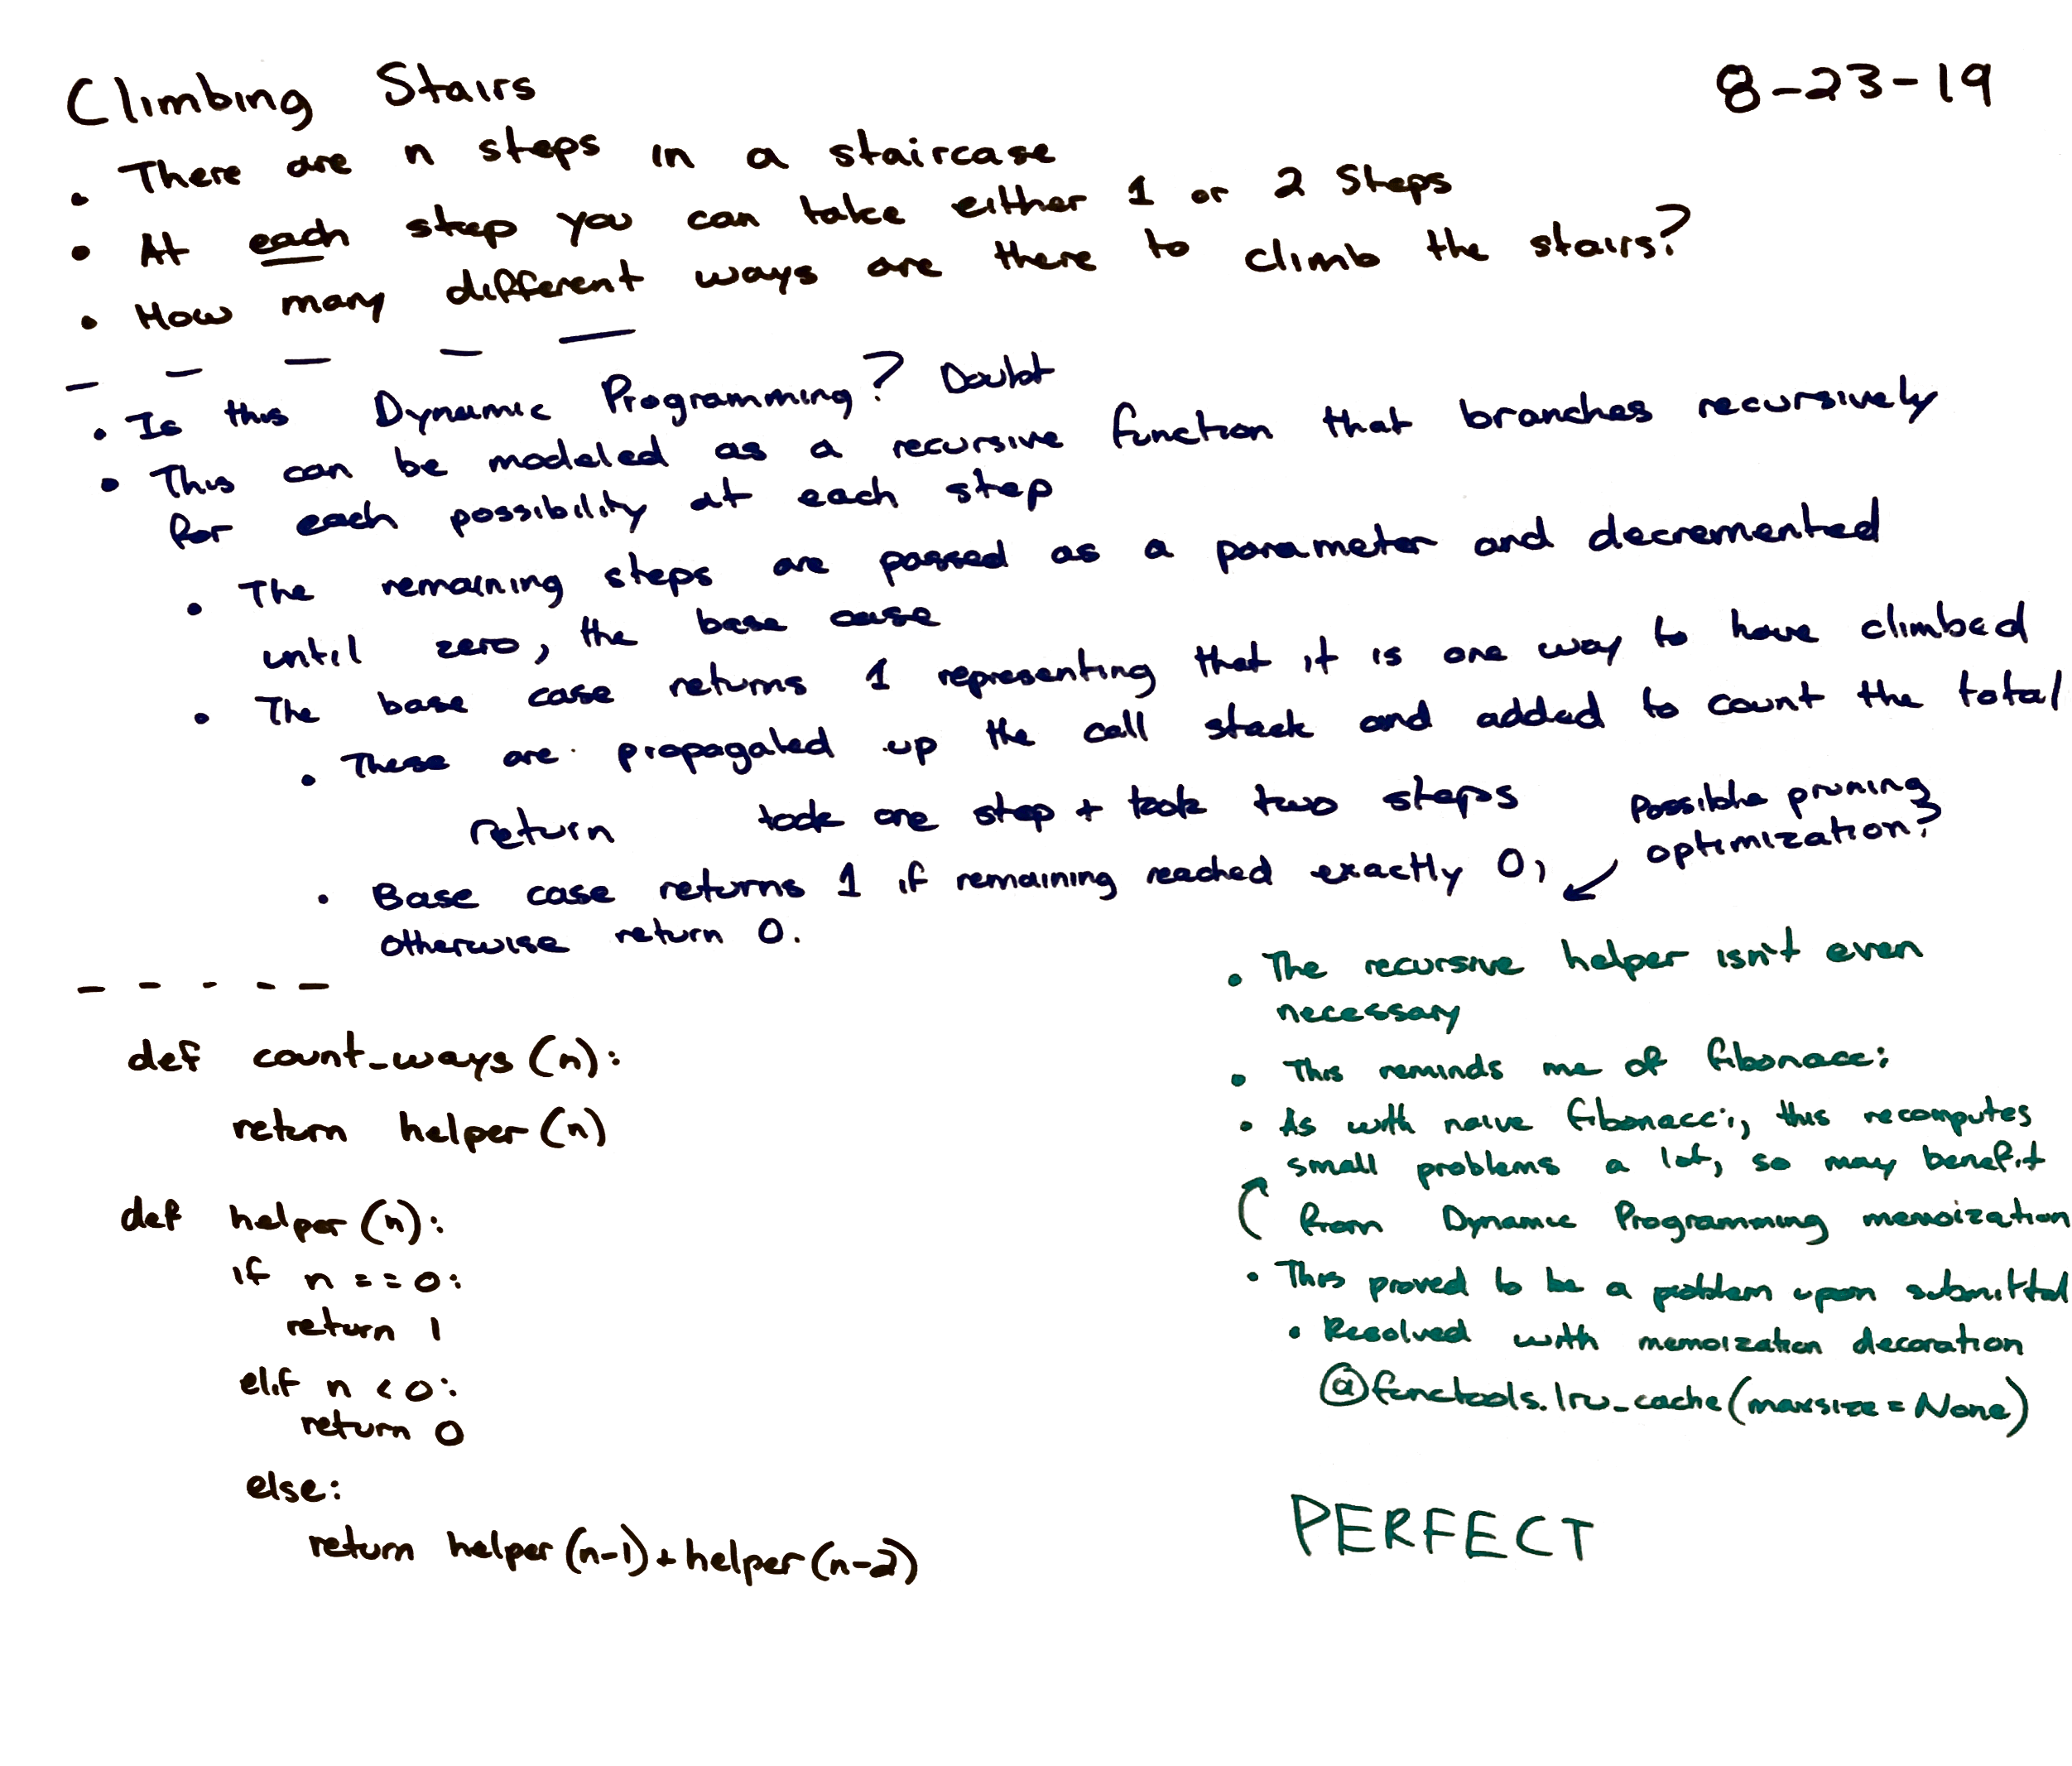 Climbing Stairs
8-23-19
• There are n steps in a staircase
• At each step you can take either 1 or 2 steps
• How many different ways are there to climb the stairs?
— — — — —
• Is this Dynamic Programming? Doubt
• This can be modeled as a recursive function that branches recursively
for each possibility at each step
• The remaining steps are passed as a parameter and decremented
until zero, the base case
• The base case returns 1 representing that it is one way to have climbed
• These are propagated up the call stack and added to count the total
return took one step + took two steps
Possible pruning
optimization?
• Base case returns 1 if remaining reached exactly 0,
otherwise return 0.
— - - - —
def count_ways(n):
return helper(n)
def helper(n):
if n == 0:
return 1
elif n < 0:
return 0
else:
return helper(n-1)+helper(n-2)
• The recursive helper isn't even
necessary
• This reminds me of fibonacci
• As with naive fibonacci, this recomputes
small problems a lot, so may benefit
from Dynamic Programming memoization
• This proved to be a problem upon submittal
• Resolved with memoization decoration
@functools.lru_cache(maxsize=None)
PERFECT